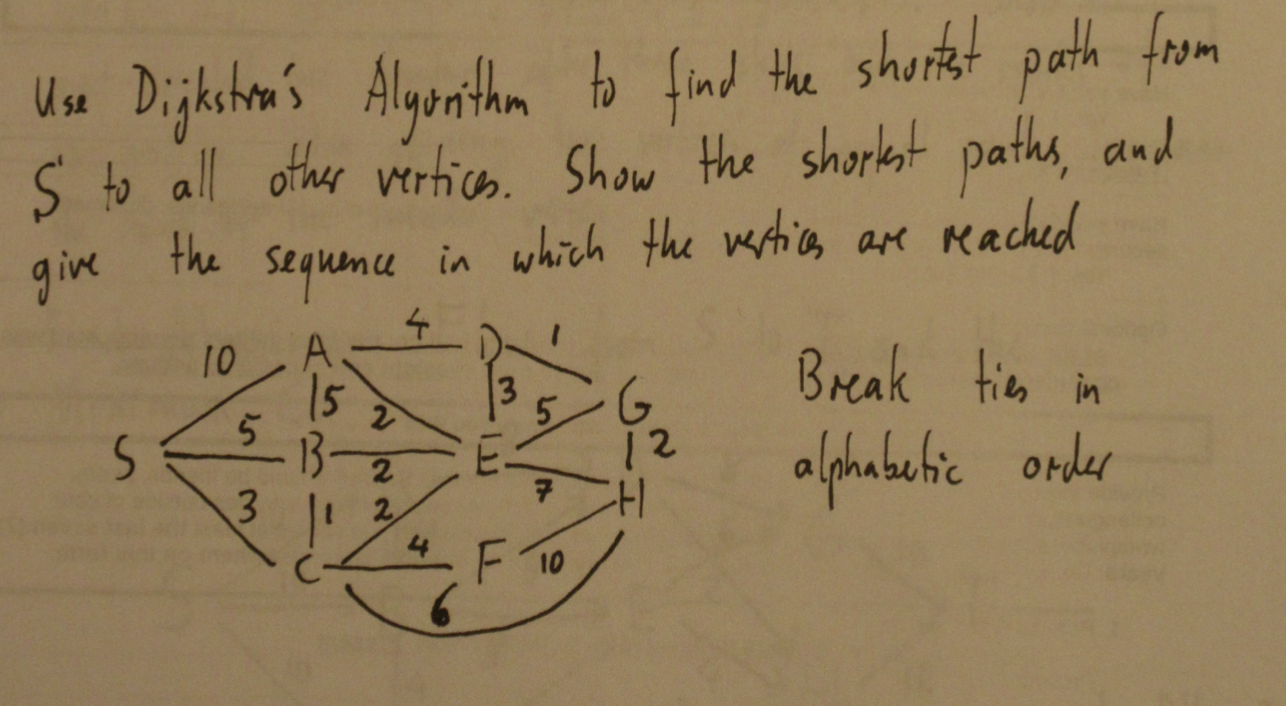 Use Dijkstra's Algorithm to find the shortest path from
S to all other vertices. Show the shortest paths, and
give the sequence in which the vertices are reached
4
10 A D 1
5 2 3 5 G
5
S B E 2
2
3 1 2 7 H
4
C F 10
6
Break ties in
alphabetic order